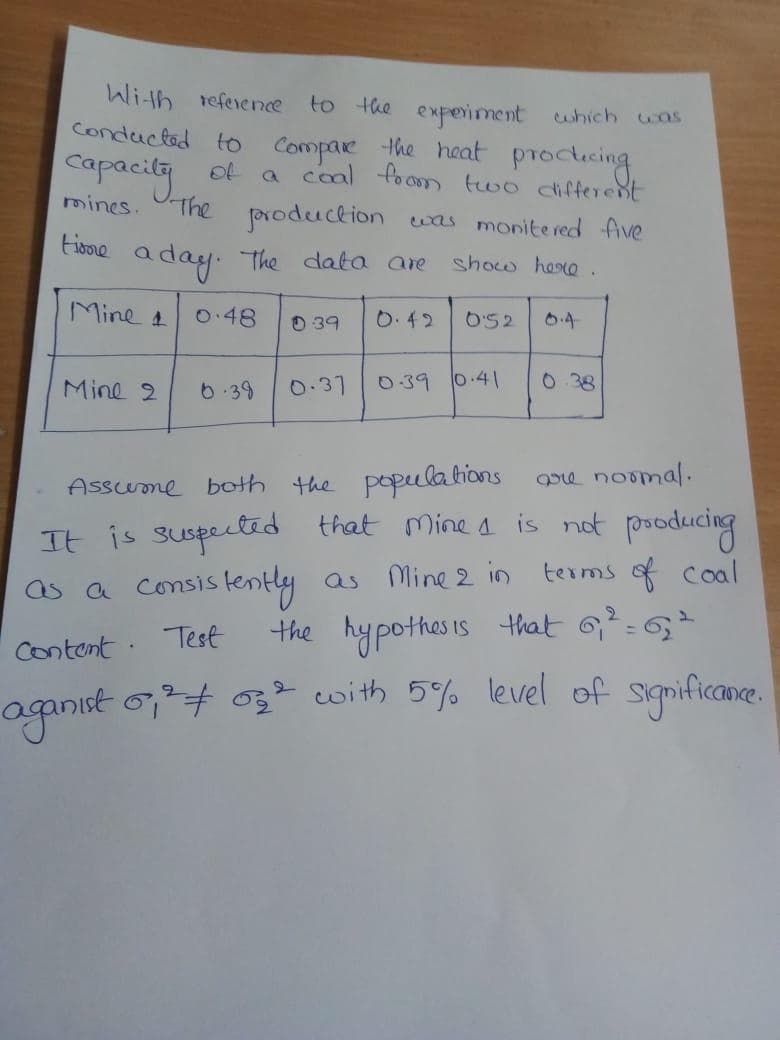 With reference to the experiment which was
conducted to Compare the heat producing
capacity of a coal from two different
mines. The production was monitered five
time a day. The data are show here.
Mine 1 0.48 0.39 0.42 0.52 0.4
Mine 2 0.38 0.37 0.39 0.41 0.38
Assume both the populations are normal.
It is suspected that Mine 1 is not producing
as a consistently as Mine 2 in terms of coal
content. Test the hypothesis that σ₁² = σ₂²
aganist σ₁² ≠ σ₂² with 5% level of significance.